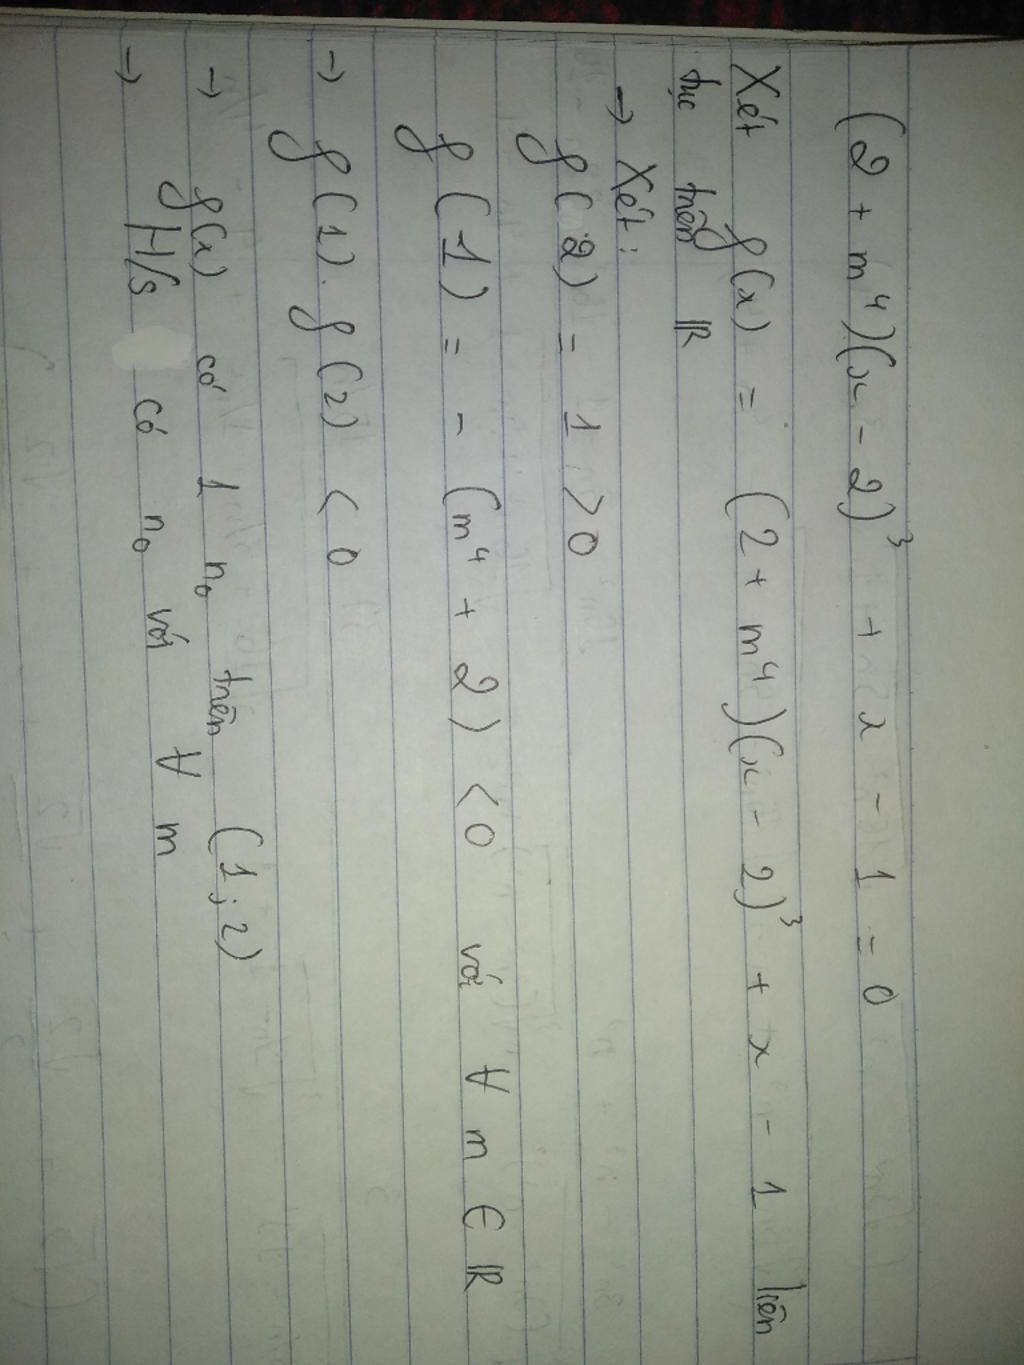 (2 + m⁴)(x - 2)³ + x - 1 = 0
Xét f(x) = (2 + m⁴)(x - 2)³ + x - 1 liên
tục trên ℝ
→ Xét :
f(2) = 1 > 0
f(1) = - (m⁴ + 2) < 0 với ∀ m ∈ ℝ
→ f(1) . f(2) < 0
→ f(x) có 1 n₀ trên (1 ; 2)
→ H/s có n₀ với ∀ m